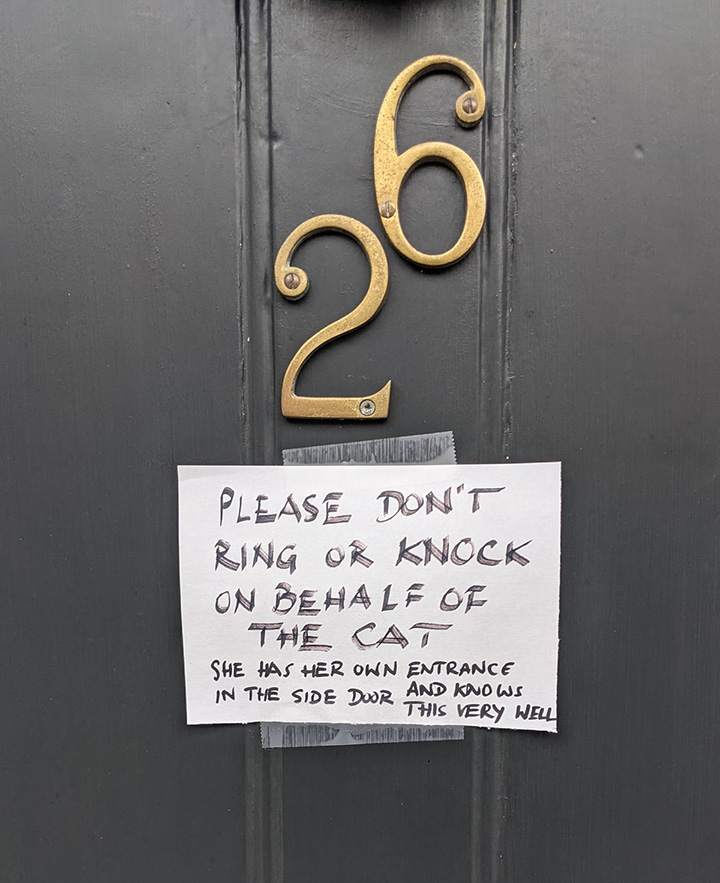 26
PLEASE DON'T
RING OR KNOCK
ON BEHALF OF
THE CAT
SHE HAS HER OWN ENTRANCE
IN THE SIDE DOOR AND KNOWS
THIS VERY WELL